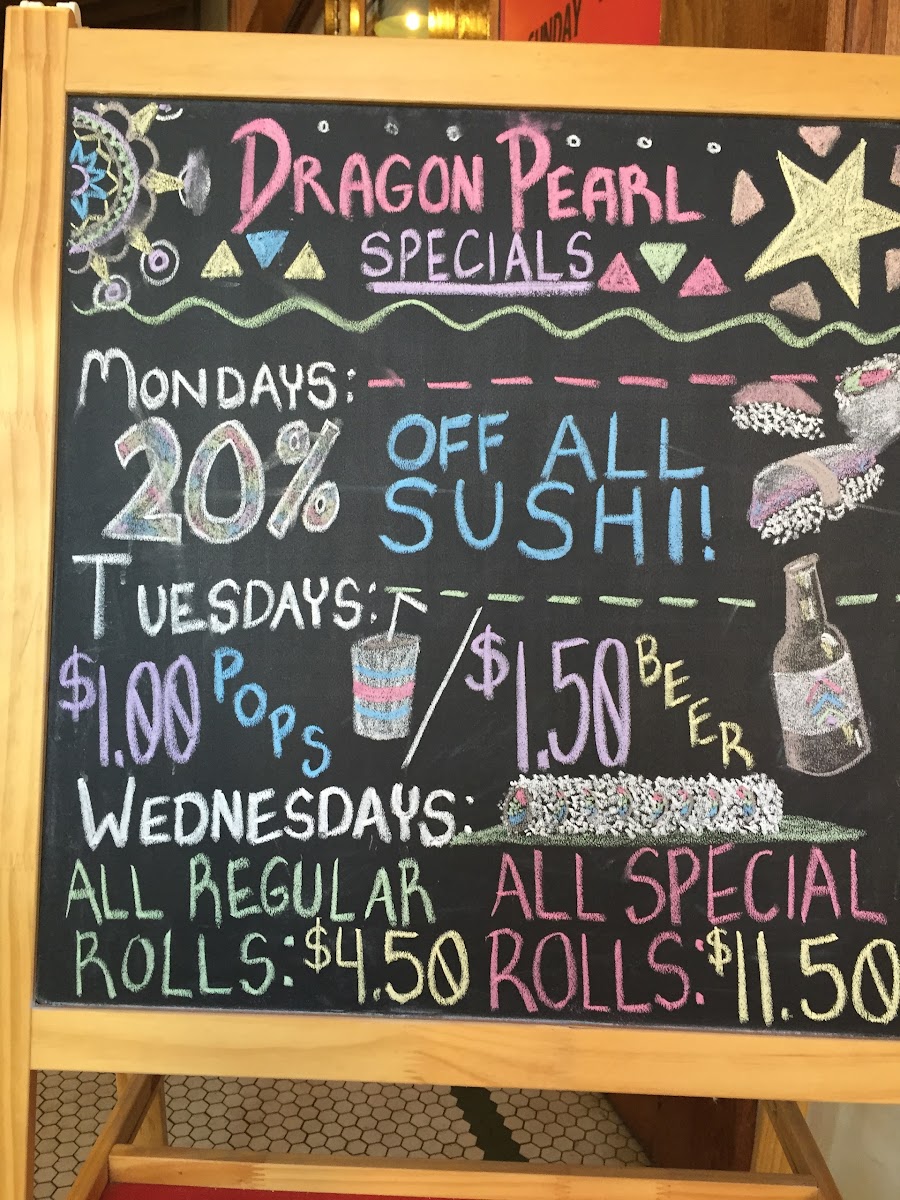 SUNDAY
DRAGON PEARL
SPECIALS
MONDAYS:
20% OFF ALL
SUSHI!
TUESDAYS:
$1.00 POPS / $1.50 BEER
WEDNESDAYS:
ALL REGULAR ALL SPECIAL
ROLLS: $4.50 ROLLS: $11.50